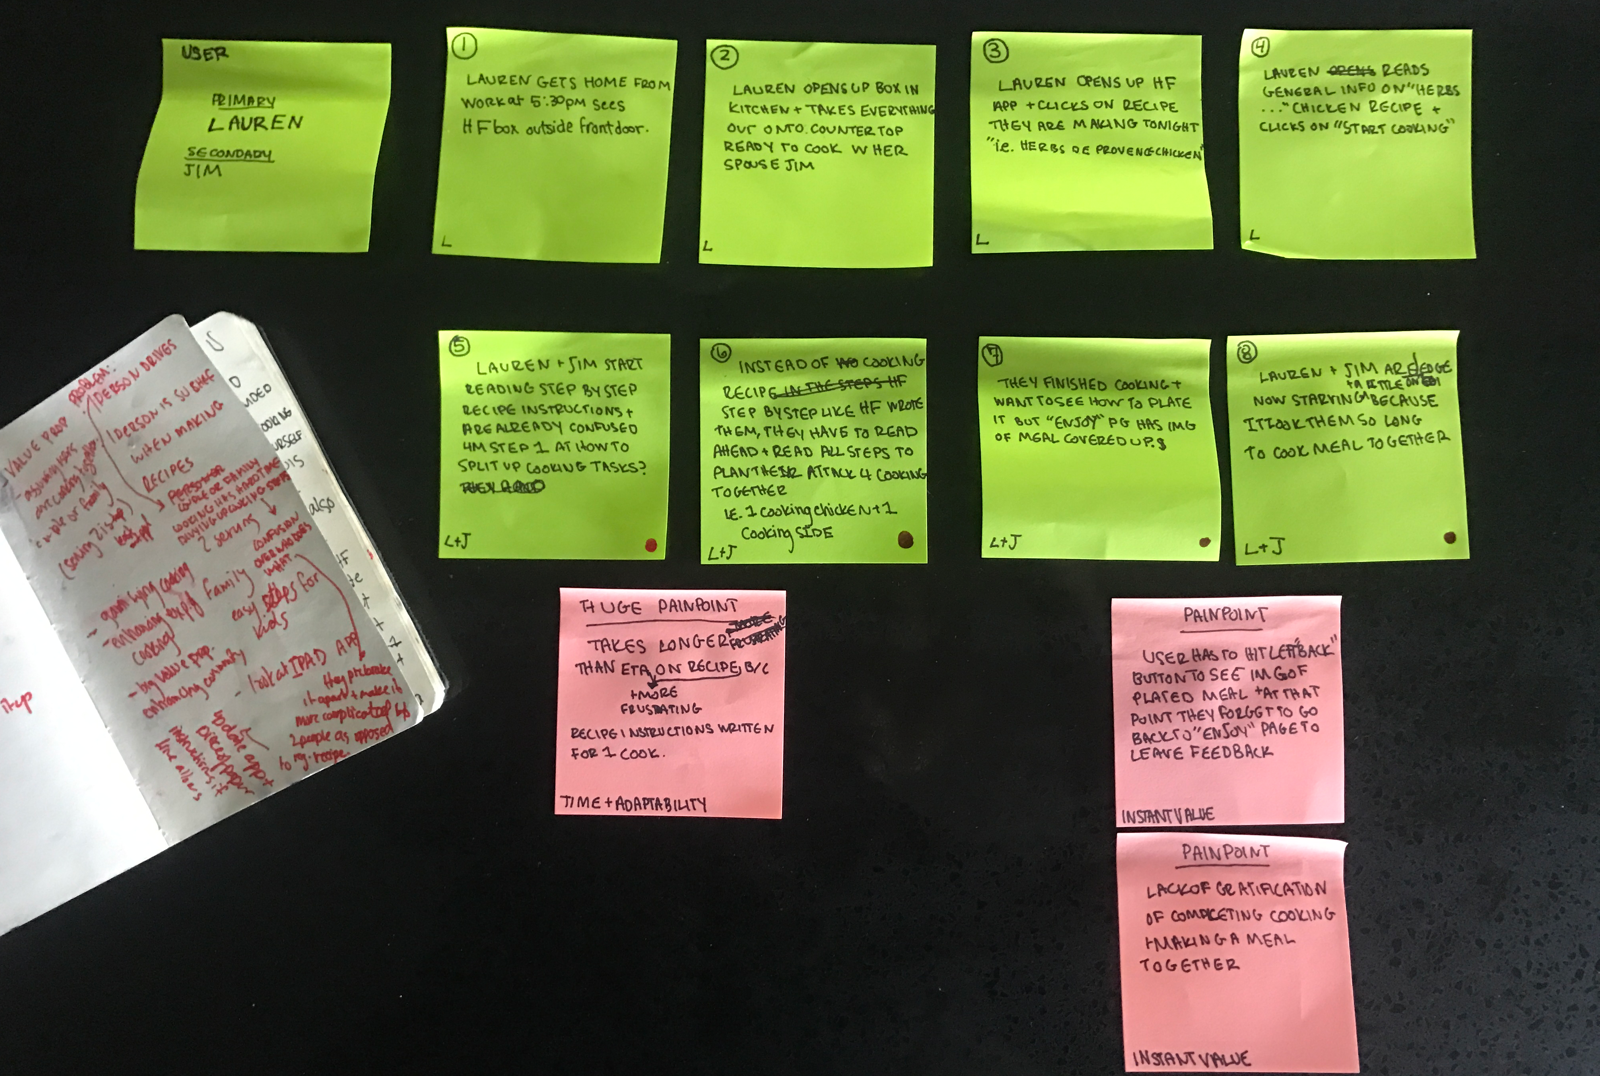 USER
PRIMARY
LAUREN
SECONDADY
JIM
1
LAUREN GETS HOME FROM
WORK at 5:30pm SEES
HF box outside front door.
L
2
LAUREN OPENS UP BOX IN
KITCHEN + TAKES EVERYTHING
OUT ONTO COUNTER TOP
READY TO COOK W HER
SPOUSE JIM
L
3
LAUREN OPENS UP HF
APP + CLICKS ON RECIPE
THEY ARE MAKING TONIGHT
"i.e. HERBS DE PROVENCE CHICKEN"
L
4
LAUREN OPENS READS
GENERAL INFO ON "HERBS
..." CHICKEN RECIPE +
CLICKS ON "START COOKING"
L
5
LAUREN + JIM START
READING STEP BY STEP
RECIPE INSTRUCTIONS +
ARE ALREADY CONFUSED
4M STEP 1 AT HOW TO
SPLIT UP COOKING TASKS?
L+J
6
INSTEAD OF COOKING
RECIPE IN THE STEPS HF
STEP BY STEP LIKE HF WROTE
THEM, THEY HAVE TO READ
AHEAD + READ ALL STEPS TO
PLAN THEIR ATTACK 4 COOKING
TOGETHER
IE. 1 COOKING CHICKEN + 1
COOKING SIDE
L+J
7
THEY FINISHED COOKING +
WANT TO SEE HOW TO PLATE
IT BUT "ENJOY" PG HAS IMG
OF MEAL COVERED UP.
L+J
8
LAUREN + JIM ARE
+ A LITTLE ON EDGE
NOW STARVING BECAUSE
IT TOOK THEM SO LONG
TO COOK MEAL TOGETHER
L+J
HUGE PAINPOINT
TAKES LONGER MORE FRUSTRATING
THAN ETA ON RECIPE, B/C
+MORE
FRUSTATING
RECIPE INSTRUCTIONS WRITTEN
FOR 1 COOK.
TIME + ADAPTABILITY
PAINPOINT
USER HAS TO HIT LEFT "BACK"
BUTTON TO SEE IMG OF
PLATED MEAL + AT THAT
POINT THEY FORGET TO GO
BACK TO "ENJOY" PAGE TO
LEAVE FEEDBACK
INSTANT VALUE
PAINPOINT
LACK OF GRATIFICATION
OF COMPLETING COOKING
+ MAKING A MEAL
TOGETHER
INSTANT VALUE
VALUE PROP
PROBLEM:
1 PERSON DRIVES
1 PERSON IS SU CHEF
WHEN MAKING
RECIPES
COUPLE OR FAMILY
COOKING HAS HARD TIME
DIVYING UP COOKING STEPS
2 serving
CONFUSION
OVER WHO DOES
WHAT
- gamifying cooking
- enhancing exp of family
cooking
easy steps for
kids
- big value prop.
enhancing community
- look at IPAD APP
they pbl broke
it apart + make it
more complicated by
2 people as opposed
to reg. recipe
update app +
piece of paper
instructions if
time allows
also
it up